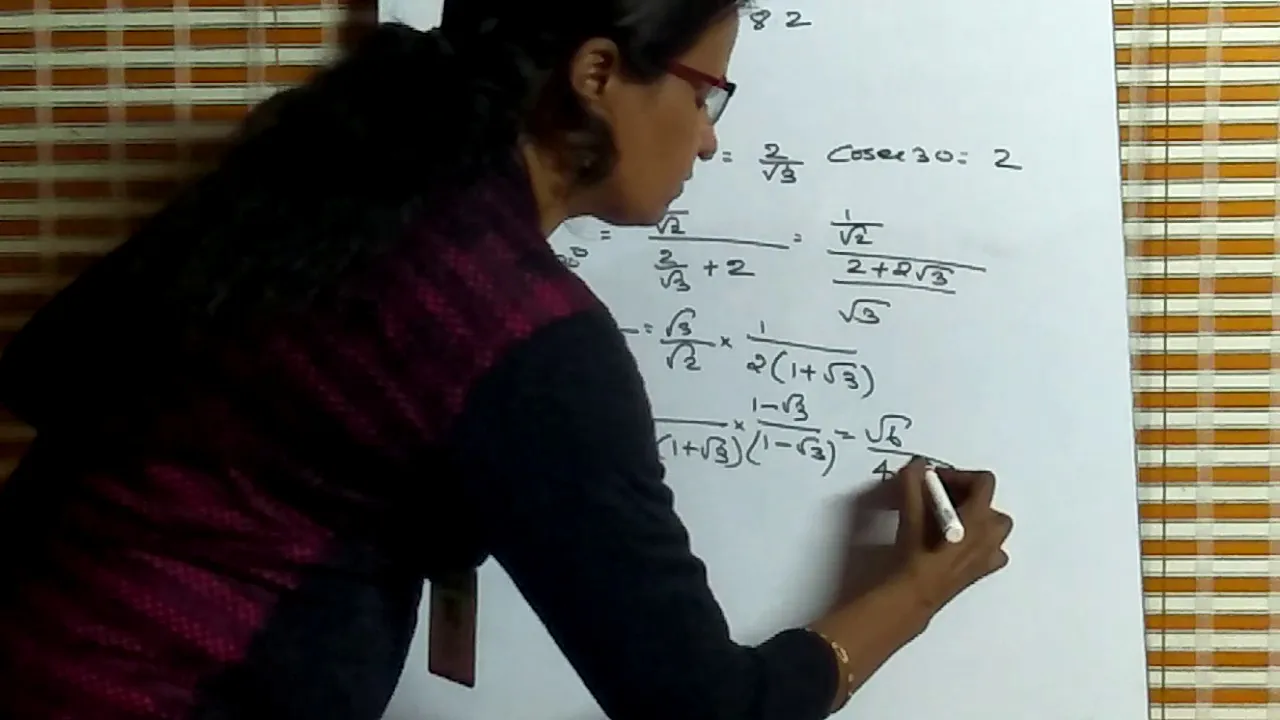 82
= 2/√3 Cosec 30 = 2
= √2 / (2/√3 + 2) = (1/√2) / ((2+2√3)/√3)
= √3/√2 × 1/(2(1+√3))
/(1+√3) × (1-√3)/(1-√3) = √6/4